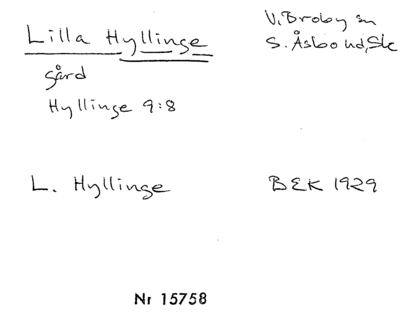 Lilla Hyllinge
V. Broby sn
S. Åsbo hd, Sk
gård
Hyllinge 9:8
L. Hyllinge
BEK 1929
Nr 15758